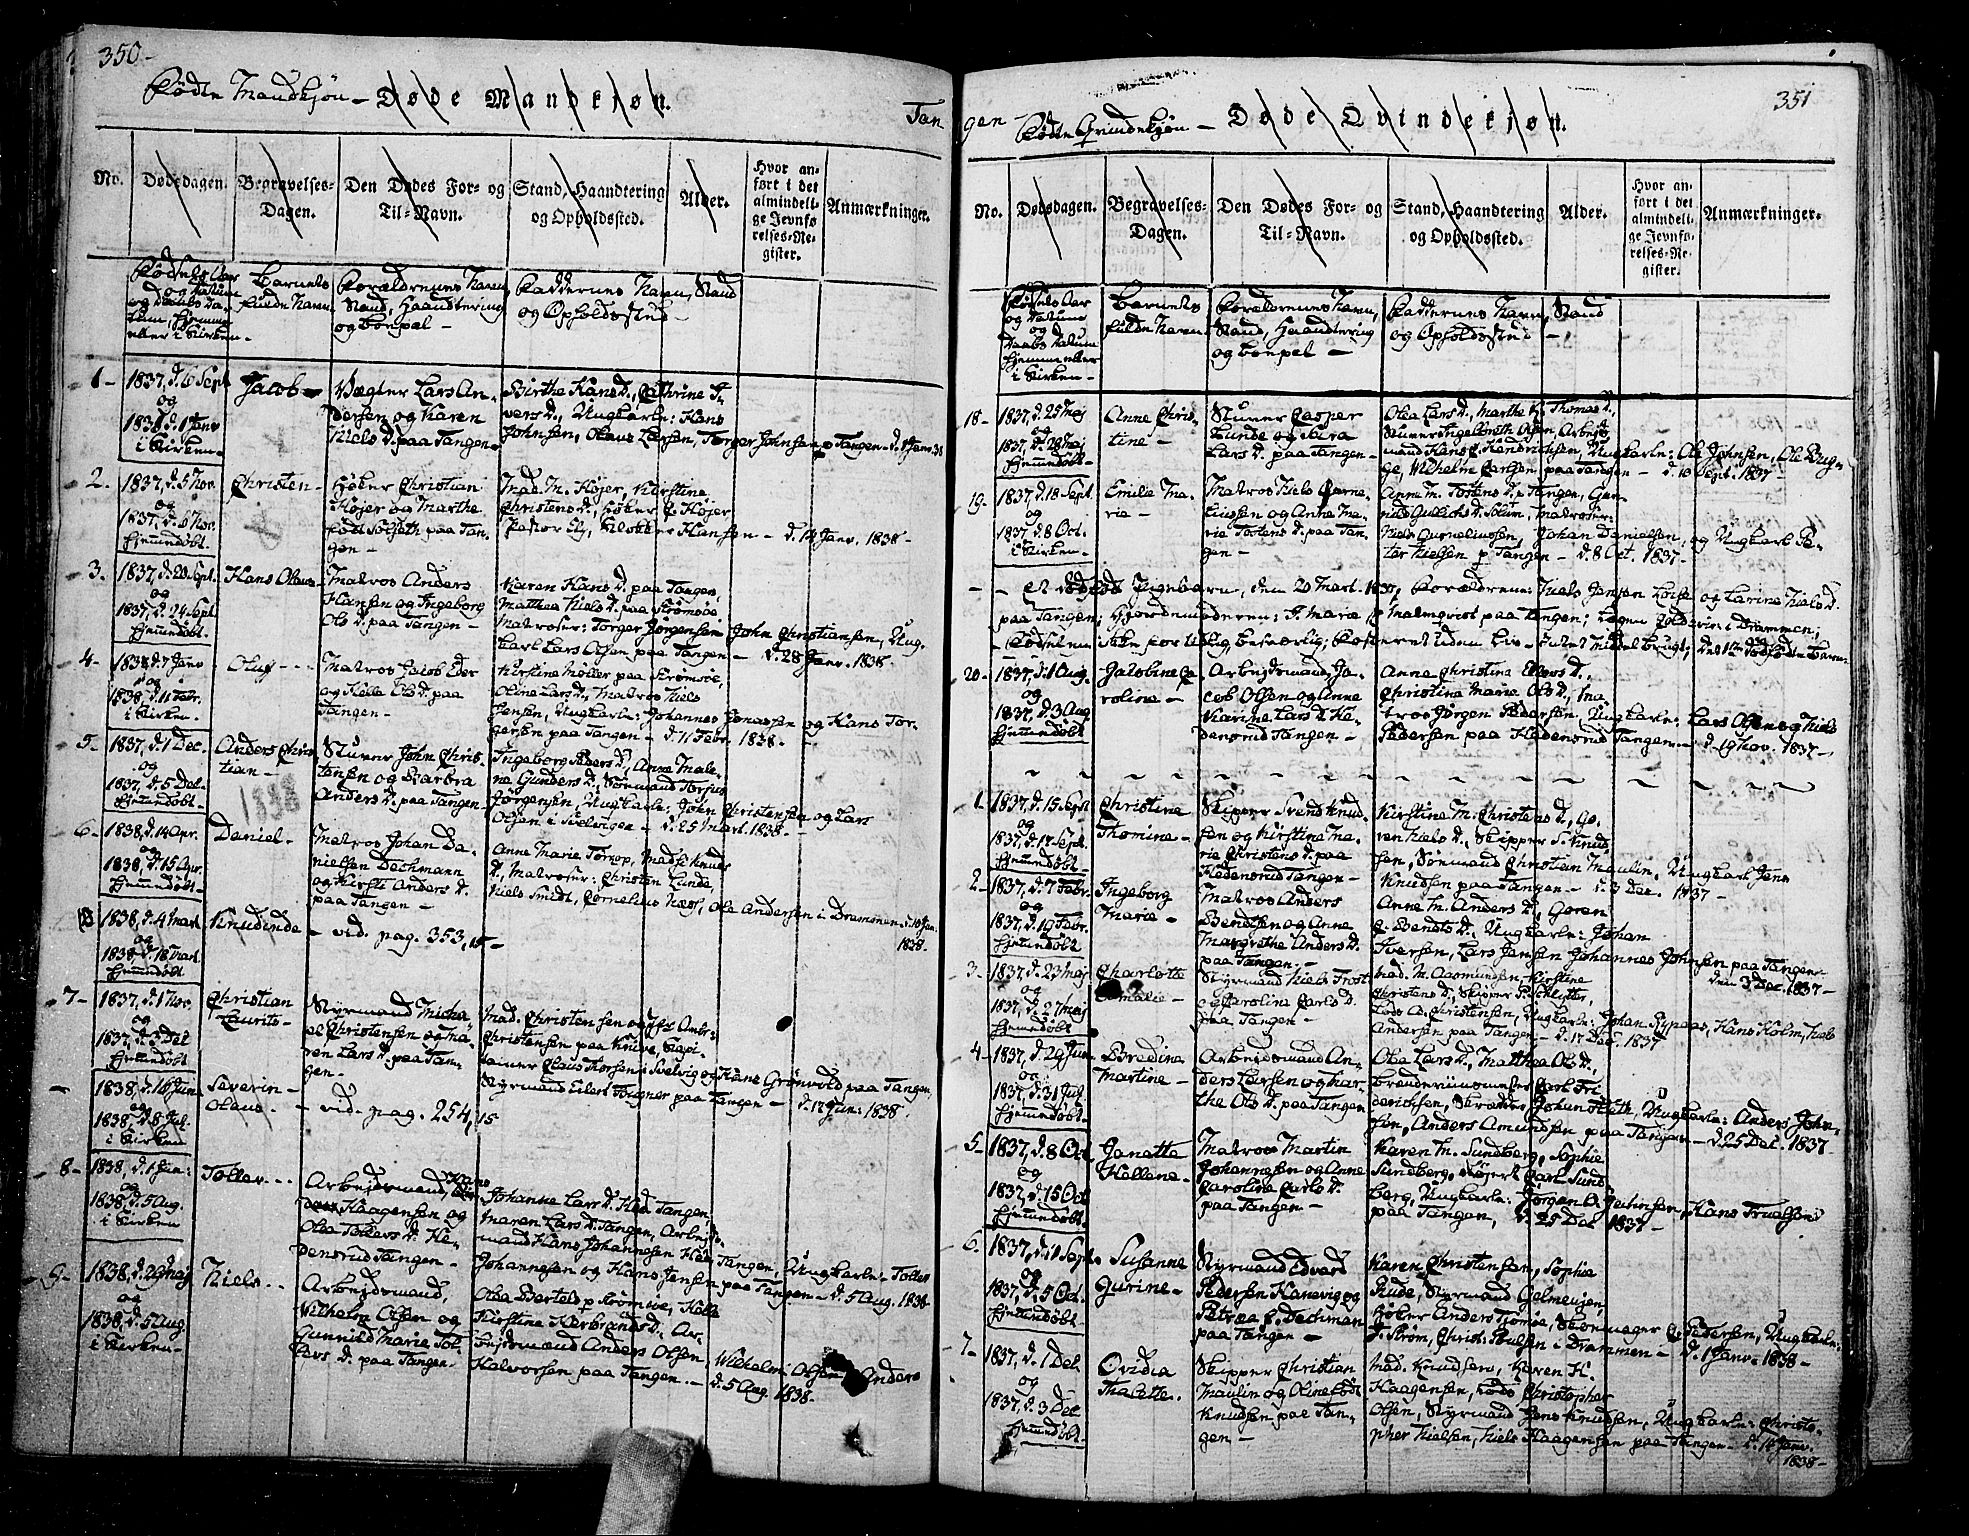 350-
Fødte Mandkjøn - Døde Mandkjøn.
Tan
No.
Dødsdagen.
Begravelses-
Dagen.
Den Dødes For- og
Til-Navn.
Stand, Haandtering
og Opholdssted.
Alder.
Hvor an-
ført i det
almindeli-
ge Jevnfø-
relses-Re-
gister.
Anmærkninger.
Fødsels Aar
og Datum
og Daabs Da-
tum, hjemme
eller i Kirken -
Barnets
fulde Navn
Forældrenes Navn,
Stand, Haandtering
og Bopæl -
Faddernes Navn, Stand
og Opholdssted -
1-
1837, d. 6 Sept
og
1838 d. 1 Janv
i Kirken -
Jacob -
Vægter Lars An-
dersen og Karen
Niels D. paa Tangen -
Birthe Hans D., Cathrine I-
vers D., Ungkarle: Hans
Johnsen, Olaus Larsen, Torger Johnsen p Tangen - d. 1 Janv. 38
2.
1837, d. 5 Nov.
og
1837, d. 6 Nov.
hjemmdøbt.
Christen -
Høker Christian
Højer og Marthe
født Solseth paa Tan-
gen -
Mad. M. Højer, Kirstine
Christens D., Høker J. Højer
Pastor Ely, Klokker Hansen - d. 14 Janv. 1838 -
3.
1837, d. 20 Sept.
og
1837, d. 24 Sept
hjemmdøbt.
Hans Olaus -
Matros Anders
Hansen og Ingeborg
Ols D. paa Tangen -
Karen Hans D. paa Tangen,
Matthea Niels D. paa Strømsøe
Matroser: Torger Jørgensen, John Christiansen, Ung-
karl Lars Olsen paa Tangen - d. 28 Janv. 1838 -
4-
1838 d. 7 Janv
og
1838, d. 11 Febr.
i Kirken -
Oluf -
Matros Jacob Eder
og Helle Ols D. paa
Tangen -
Kirstine Møller paa Strømsøe,
Oline Lars D., Matros Niels
Jensen, Ungkarle: Johannes Jonassen og Hans Tor-
gersen paa Tangen - d. 11 Febr. 1838 -
5-
1837, d. 1 Dec.
og
1837, d. 5 Dec.
hjemmdøbt -
Anders Chris-
tian -
1838
Stuver John Chris-
tensen og Barbra
Anders D. paa Tangen -
Ingeborg Peders D., Anne Male-
ne Gunders D., Sømand Torjus
Jørgensen, Ungkarle: John Christensen og Lars
Olsen i Svelvigen - d. 25 Mart. 1838 -
6-
1838, d. 14 Apr.
og
1838, d. 15 Apr.
hjemmdøbt -
Daniel -
Matros Johan Da-
nielsen Dechmann
og Kirsti Anders D.
paa Tangen -
Anne Marie Torrop, Madse Knuds
D., Matroser: Christen Lunde,
Niels Smidt, Cornelius Næss, Ole Andersen i Drammen, d. 10 Jun:
1838.
1838, d. 4 Mart
og
1838, d. 18 Mart
hjemmdøbt
Knudinde
- vid. pag. 353, 15 -
7-
1837, d. 1 Nov.
og
1837, d. 3 Dec
hjemmdøbt
Christian
Laurits -
Styrmand Micha-
el Christensen og Ma-
ren Lars D. paa Tan-
gen -
Mad. Christensen og Jfr Ambr.
Christensen paa Knive, Capi-
tainer Claus Thorsen i Svelvig og Hans Grønvold paa Tangen,
Styrmand Eilert Fougner paa Tangen - d. 17 Jun: 1838.
-
1838, d. 16 Jun.
og
1838, d. 8 Jul.
i Kirken
Severin
Olaus -
- vid. pag. 254, 15
8-
1838 d. 1 Jun:
og
1838, d. 5 Aug.
i Kirken
Toller -
Arbejdsmand Hans
Haagensen og
Olea Tollers D. He-
densrud Tangen -
Johanne Lars D. Hed. Tangen,
Maren Lars D. Tangen, Arbejds-
mand Hans Johannesen Hed. Tangen, Ungkarle: Toller
Johannesen og Hans Jensen paa Tangen - d. 5 Aug. 1838 -
9-
1838, d. 29 Maj
og
1838, d. 5 Aug.
i Kirken -
Niels -
Arbejdsmand,
Wilhelm Olsen og
Gunnild Marie Tol-
lers D. paa Tangen -
Olea Bertels p Strømsøe, Helle
Kirstine Herbrands D., Ar-
bejdsmand Anders Olsen, Wilhelm Olsen, Anders
Halvorsen paa Tangen. - d. 5 Aug. 1838 -
351
gen -
Fødte Qvindekjøn - Døde Qvindekjøn.
No.
Dødsdagen.
Begravelses-
Dagen.
Den Dødes For- og
Til-Navn.
Stand, Haandtering
og Opholdssted.
Alder.
Hvor an-
ført i det
almindeli-
ge Jevnfø-
relses-Re-
gister.
Anmærkninger.
Fødsels Aar
og Datum
og
Daabs Datum
hjemme eller
i Kirken -
Barnets
fulde Navn
Forældrenes Navn,
Stand, Haandtering
og Bopæl -
Faddernes Navn, Stand
og Opholdssted -
18-
1837, d. 25 Maj
og
1837, d. 28 Maj
hjemmdøbt -
Anne Chris-
tine -
Stuver Casper
Lunde og Sara
Lars D. paa Tangen -
Olea Lars D., Marthe K. Thomas D.,
Stuver Ingebreth Olsen, Arbejds-
mand Hans C. Hendrichsen, Ungkarle: Ole Johnsen, Ole Byg-
ge, Wilhelm Carlsen paa Tangen - d. 10 Sept. 1837
19-
1837, d. 18 Sept.
og
1837 d. 8 Oct.
i Kirken -
Emilie Ma-
rie -
Matros Niels Corne-
liussen og Anne Ma-
rie Tostens D. paa Tan-
gen -
Anne M. Tostens D. p Tangen, Gun-
nild Gullichs D. Solum, Matroser:
Niels Corneliussen, Johan Danielsen, og Ungkarl Pe-
ter Nielsen p Tangen - d. 8 Oct. 1837 -
- - et dødfød Pigebarn, dem 20 Mart. 1837, Forældrene: Niels Jensen Loise og Larine Niels D.
paa Tangen; Hjordemoderen: J. Marie C Malmqvist paa Tangen; Lægen Joldwin i Drammen;
- Fødselen ikke for tidlig, besværlig; Fosteret uden Liv - Intet Middel brugt; det 1ste dødfødte Barn -
20-
1837, d. 1 Aug.
og
1837, d. 3 Aug
hjemmdøbt
Jacobine Ca-
roline -
Arbejdsmand Ja-
cob Olsen og Anne
Karine Lars D. He-
densrud Tangen -
Anne Christine Ellers D.,
Christine Marie Ols D., Ma-
tros Jørgen Pedersen, Ungkarle: Lars Olsen og Niels
Pedersen paa Hedensrud Tangen - d. 19 Nov. 1837 -
1.
1837, d. 15 Sept
og
1837, d. 17 Sept.
hjemmdøbt
Christine
Thomine -
Skipper Svend Knud-
sen og Kirstine Ma-
rie Christens D. paa
Hedensrud Tangen -
Kirstine M. Christens D., Go-
ren Niels D., Skipper S. Knud-
sen, Sømand Christian Maulin, Ungkarl Jens
Knudsen paa Tangen - d. 3 Dec. 1837 -
2-
1837, d. 7 Febr.
og
1837, d. 19 Febr.
hjemmdøbt
Ingeborg
Marie -
Matros Anders
Bendtsen og Anne
Margrethe Anders D.
paa Tangen. -
Anne M. Anders D., Goren
C. Bendts D., Ungkarle: Johan
Iversen, Lars Jansen Johannes Johnsen paa Tangen
den 3 Dec. 1837 -
3-
1837, d. 23 Maj
og
1837, d. 27 Maj
hjemmdøbt
Charlotte
Amalie -
Styrmand Niels Frost
og Caroline Carls D.
paa Tangen -
Mad. M. Aasmundsen, Kirstine
Christens D., Skipper P. Schlytter,
Lars A. Christensen, Ungkarle: Johan Rypaas, Hans Holm, Niels
Andersen paa Tangen - d. 17 Dec. 1837
4-
1837, d. 29 Jun.
og
1837, d. 31 Jul.
hjemmdøbt
Bredine
Martine -
Arbejdsmand An-
ders Larsen og Mar-
the Ols D. paa Tangen
Olea Lars D., Matthea Ols D.,
Brænderiinspecteur Carl Fri-
derichsen, Skrædder Johan Fleth, Ungkarle: Anders John-
sen, Anders Amundsen paa Tangen - d. 25 Dec. 1837
5-
1837, d. 8 Oct
og
1837, d. 15 Oct
hjemmdøbt
Janette
Hellene -
Matros Martin
Johannesen og Anne
Caroline Carls D.
paa Tangen -
Karen M. Sundberg, Sophie
Sundberg, Carl Sund-
berg, Ungkarle: Jørgen A. Hans Truelsen
paa Tangen, d. 25 Dec 1837 -
6.
1837, d. 11 Sept.
og
1837, d. 5 Oct.
hjemmdøbt
Susanne
Gurine -
Styrmand Edvard
Pedersen Kanevig og
Petrea C. Dechman
paa Tangen -
Karen Christensen, Sophie
Rude, Styrmand Gelmeyer,
Høker Anders Tromøe, Skomager C. Pedersen, Ungkarle:
J. Strøm, Christ. Poulsen i Drammen - d. 1 Janv. 1838 -
7-
1837, d. 1 Dec
og
1837, d. 3 Dec
hjemmdøbt
Ovidia
Thalette.
Skipper Christian
Maulin og Oline født
Knudsen paa Tan-
gen -
Mad. Knudsen, Karen H.
Haagensen, Lods Christopher
Olsen, Styrmand Jens Knudsen, Ungkarle: Christo-
pher Nielsen, Niels Haagensen paa Tangen - d. 14 Janv.
1838 -